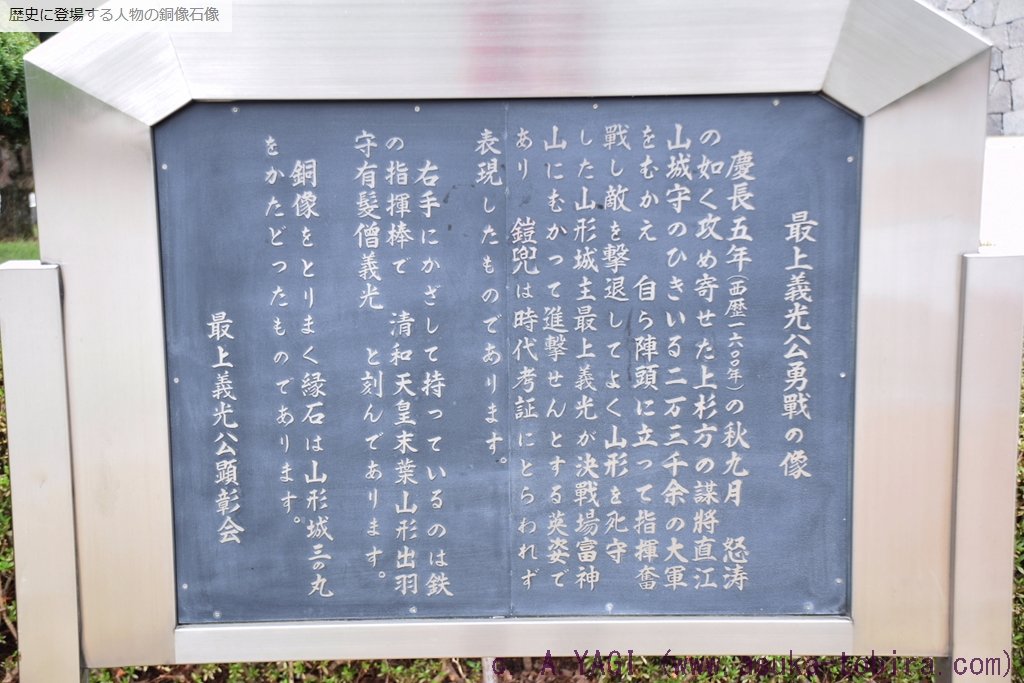 歴史に登場する人物の銅像石像
最上義光公勇戰の像
慶長五年(西歴一六〇〇年)の秋九月 怒涛
の如く攻め寄せた上杉方の謀將直江
山城守のひきいる二万三千余の大軍
をむかえ 自ら陣頭に立って指揮奮
戰し敵を擊退してよく山形を死守
した山形城主最上義光が決戰場富神
山にむかって進擊せんとする英姿で
あり 鎧兜は時代考証にとらわれず
表現したものであります。
右手にかざして持っているのは鉄
の指揮棒で 清和天皇末葉山形出羽
守有髮僧義光 と刻んであります。
銅像をとりまく縁石は山形城三の丸
をかたどったものであります。
最上義光公顕彰会
c. A.YAGI (www.asuka-tobira.com)